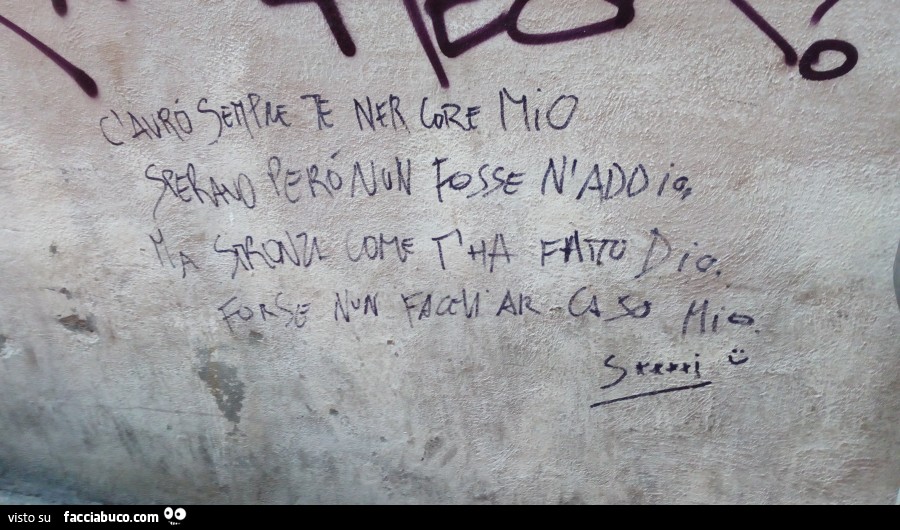 C'AVRÓ SEMPRE TE NER CORE MIO
SPERANO PERÓ NUN FOSSE N'ADDio,
MA STRONZA COME T'HA FATTO Dio.
FORSE NUN FACEVI AR CASO Mio.
S****i
visto su facciabuco.com